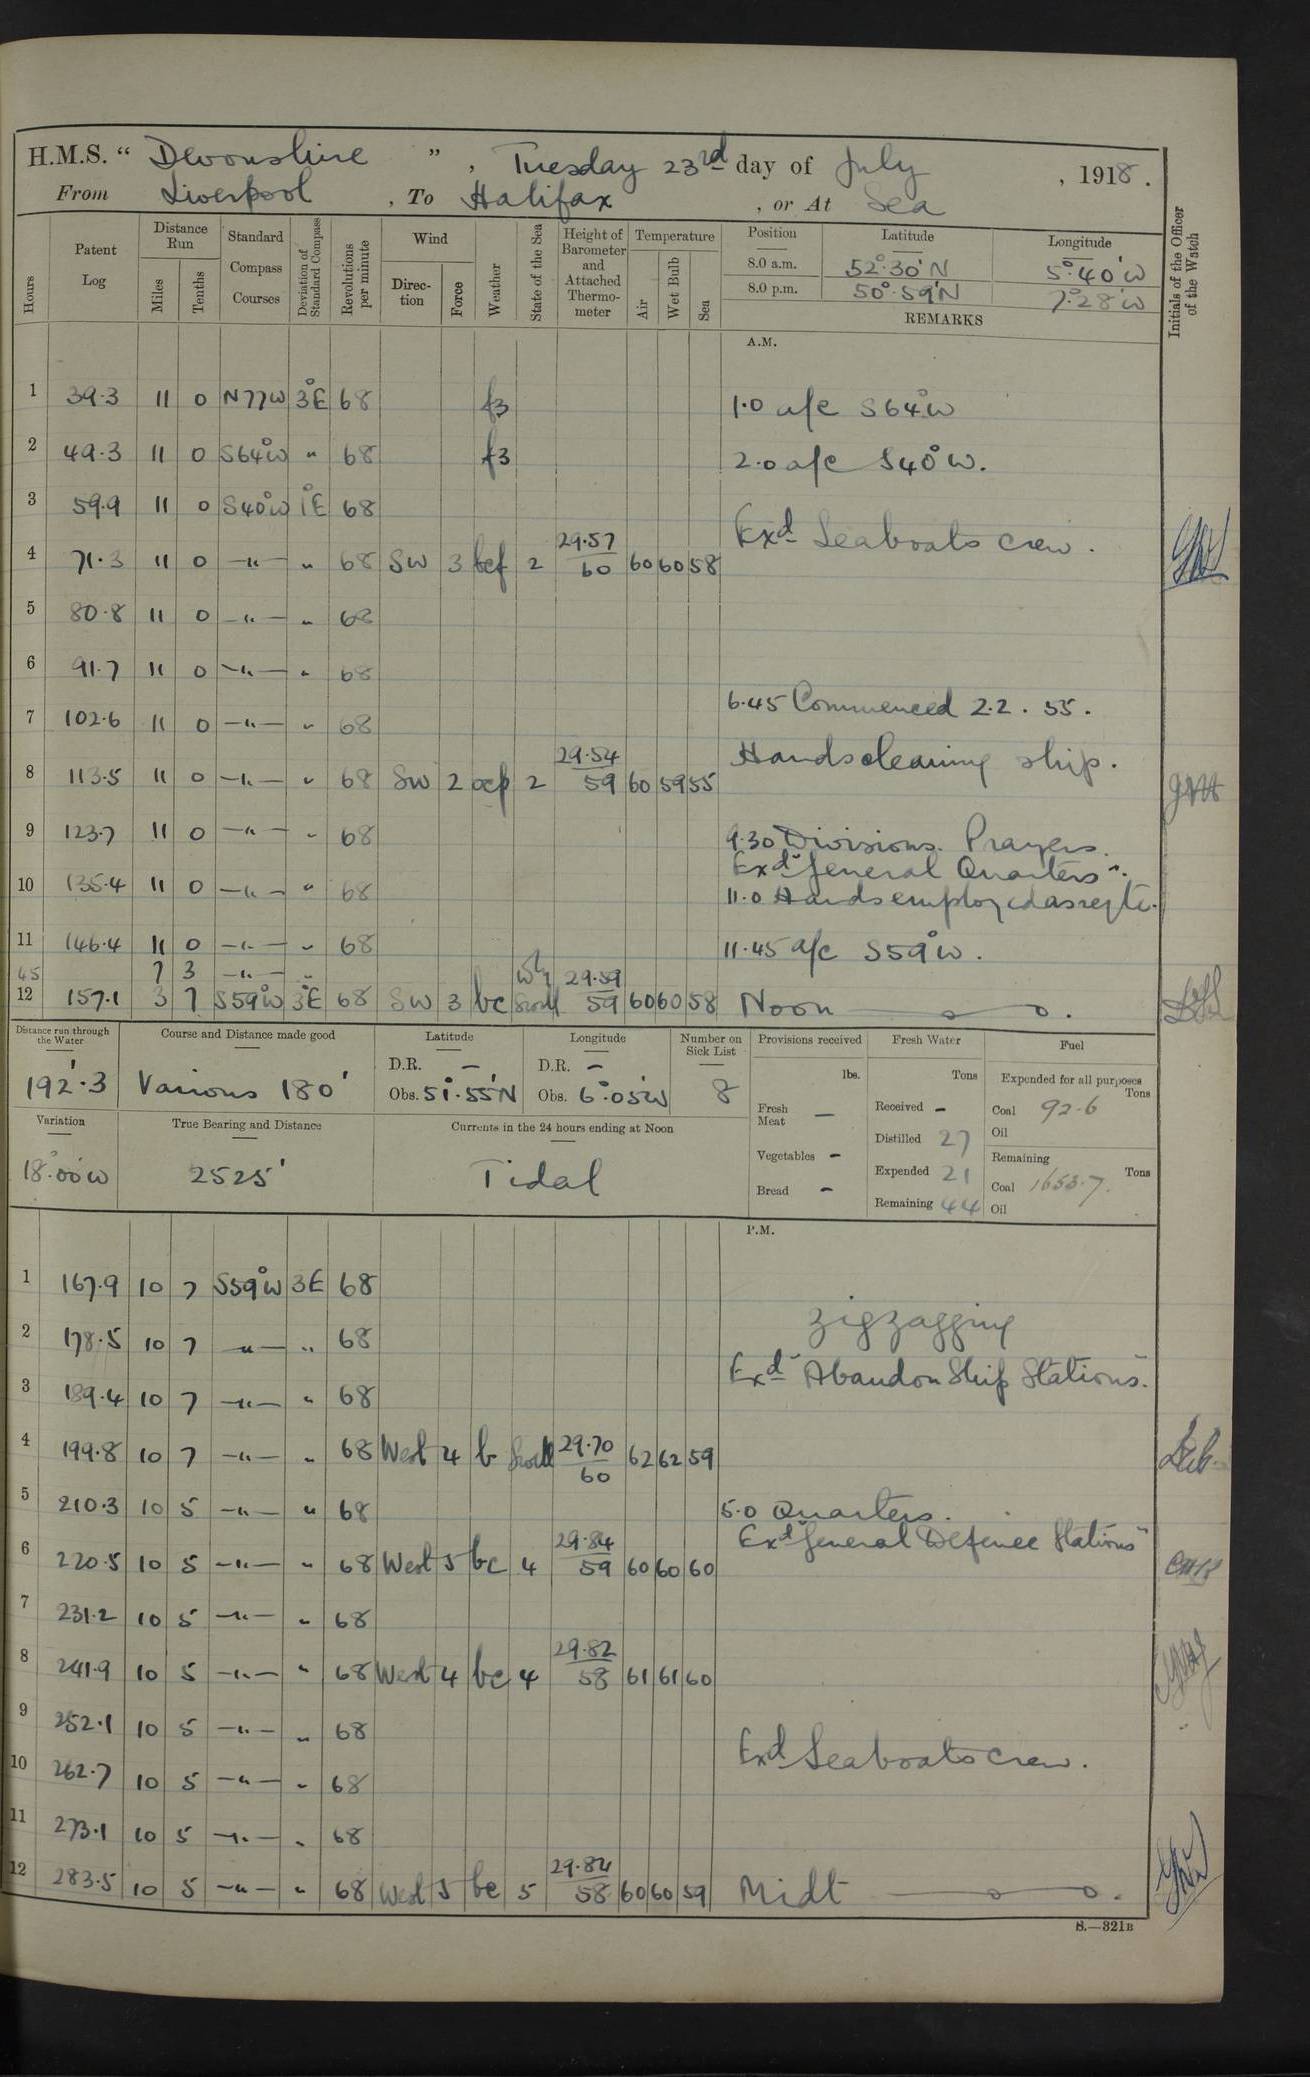 H.M.S. “ Devonshire ” , Tuesday 23rd day of July , 1918.
From Liverpool , To Halifax , or At Sea
Hours
Patent Log
Distance Run
Miles
Tenths
Standard Compass Courses
Deviation of Standard Compass
Revolutions per minute
Wind
Direction
Force
Weather
State of the Sea
Height of Barometer and Attached Thermometer
Temperature
Air
Wet Bulb
Sea
Position Latitude Longitude
8.0 a.m. 52°.30'N 5°.40'W
8.0 p.m. 50°.59'N 7°.28'W
REMARKS
Initials of the Officer of the Watch
A.M.
1 39.3 11 0 N77W 3°E 68 f3 1.0 a/c S64°W
2 49.3 11 0 S64°W " 68 f3 2.0 a/c S40°W.
3 59.9 11 0 S40°W 1°E 68
Exd Seaboats crew.
4 71.3 11 0 —"— " 68 SW 3 bcf 2 29.57 60 60 60 58
5 80.8 11 0 —"— " 68
6 91.7 11 0 —"— " 68
6.45 Commenced 2.2. 55.
7 102.6 11 0 —"— " 68
Hands cleaning ship.
8 113.5 11 0 —"— " 68 SW 2 ocp 2 29.54 59 60 59 55
9 123.7 11 0 —"— " 68 9.30 Divisions. Prayers.
Exd "General Quarters".
10 135.4 11 0 —"— " 68 11.0 Hands employed as reqte.
11 146.4 11 0 —"— " 68 11.45 a/c S59°W.
45 7 3 —"— "
12 157.1 3 7 S59°W 3°E 68 SW 3 bc Swell 29.59 59 60 60 58 Noon
Distance run through the Water 192'.3
Course and Distance made good Various 180'
Latitude D.R. — Obs. 51°.55'N
Longitude D.R. — Obs. 6°.05'W
Number on Sick List 8
Provisions received lbs.
Fresh Meat —
Vegetables —
Bread —
Fresh Water Tons
Received —
Distilled 27
Expended 21
Remaining 44
Fuel
Expended for all purposes Tons
Coal 92.6
Oil
Remaining Tons
Coal 1653.7.
Oil
Variation 18°.00'W
True Bearing and Distance 2525'
Currents in the 24 hours ending at Noon Tidal
P.M.
1 167.9 10 7 S59°W 3E 68
zigzagging
2 178.5 10 7 —"— " 68
Exd "Abandon Ship Stations".
3 189.4 10 7 —"— " 68
4 199.8 10 7 —"— " 68 West 4 b Swell 29.70 60 62 62 59
5 210.3 10 5 —"— " 68 5.0 Quarters.
Exd "General Defence Stations"
6 220.5 10 5 —"— " 68 West 5 bc 4 29.84 59 60 60 60
7 231.2 10 5 —"— " 68
8 241.9 10 5 —"— " 68 West 4 bc 4 29.82 58 61 61 60
9 252.1 10 5 —"— " 68
Exd Seaboats crew.
10 262.7 10 5 —"— " 68
11 273.1 10 5 —"— " 68
12 283.5 10 5 —"— " 68 West 5 bc 5 29.84 58 60 60 59 Midt
S.—321B